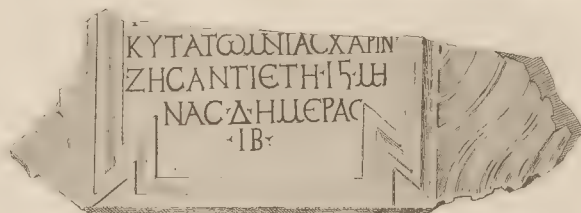 ΚΥΤΑΤΩΜΝΙΑCΧΑΡΙΝ·
ΖΗCΑΝΤΙΕΤΗ·ΙϚ·ΜΗ
ΝΑC·Δ·ΗΜΕΡΑC
·ΙΒ·